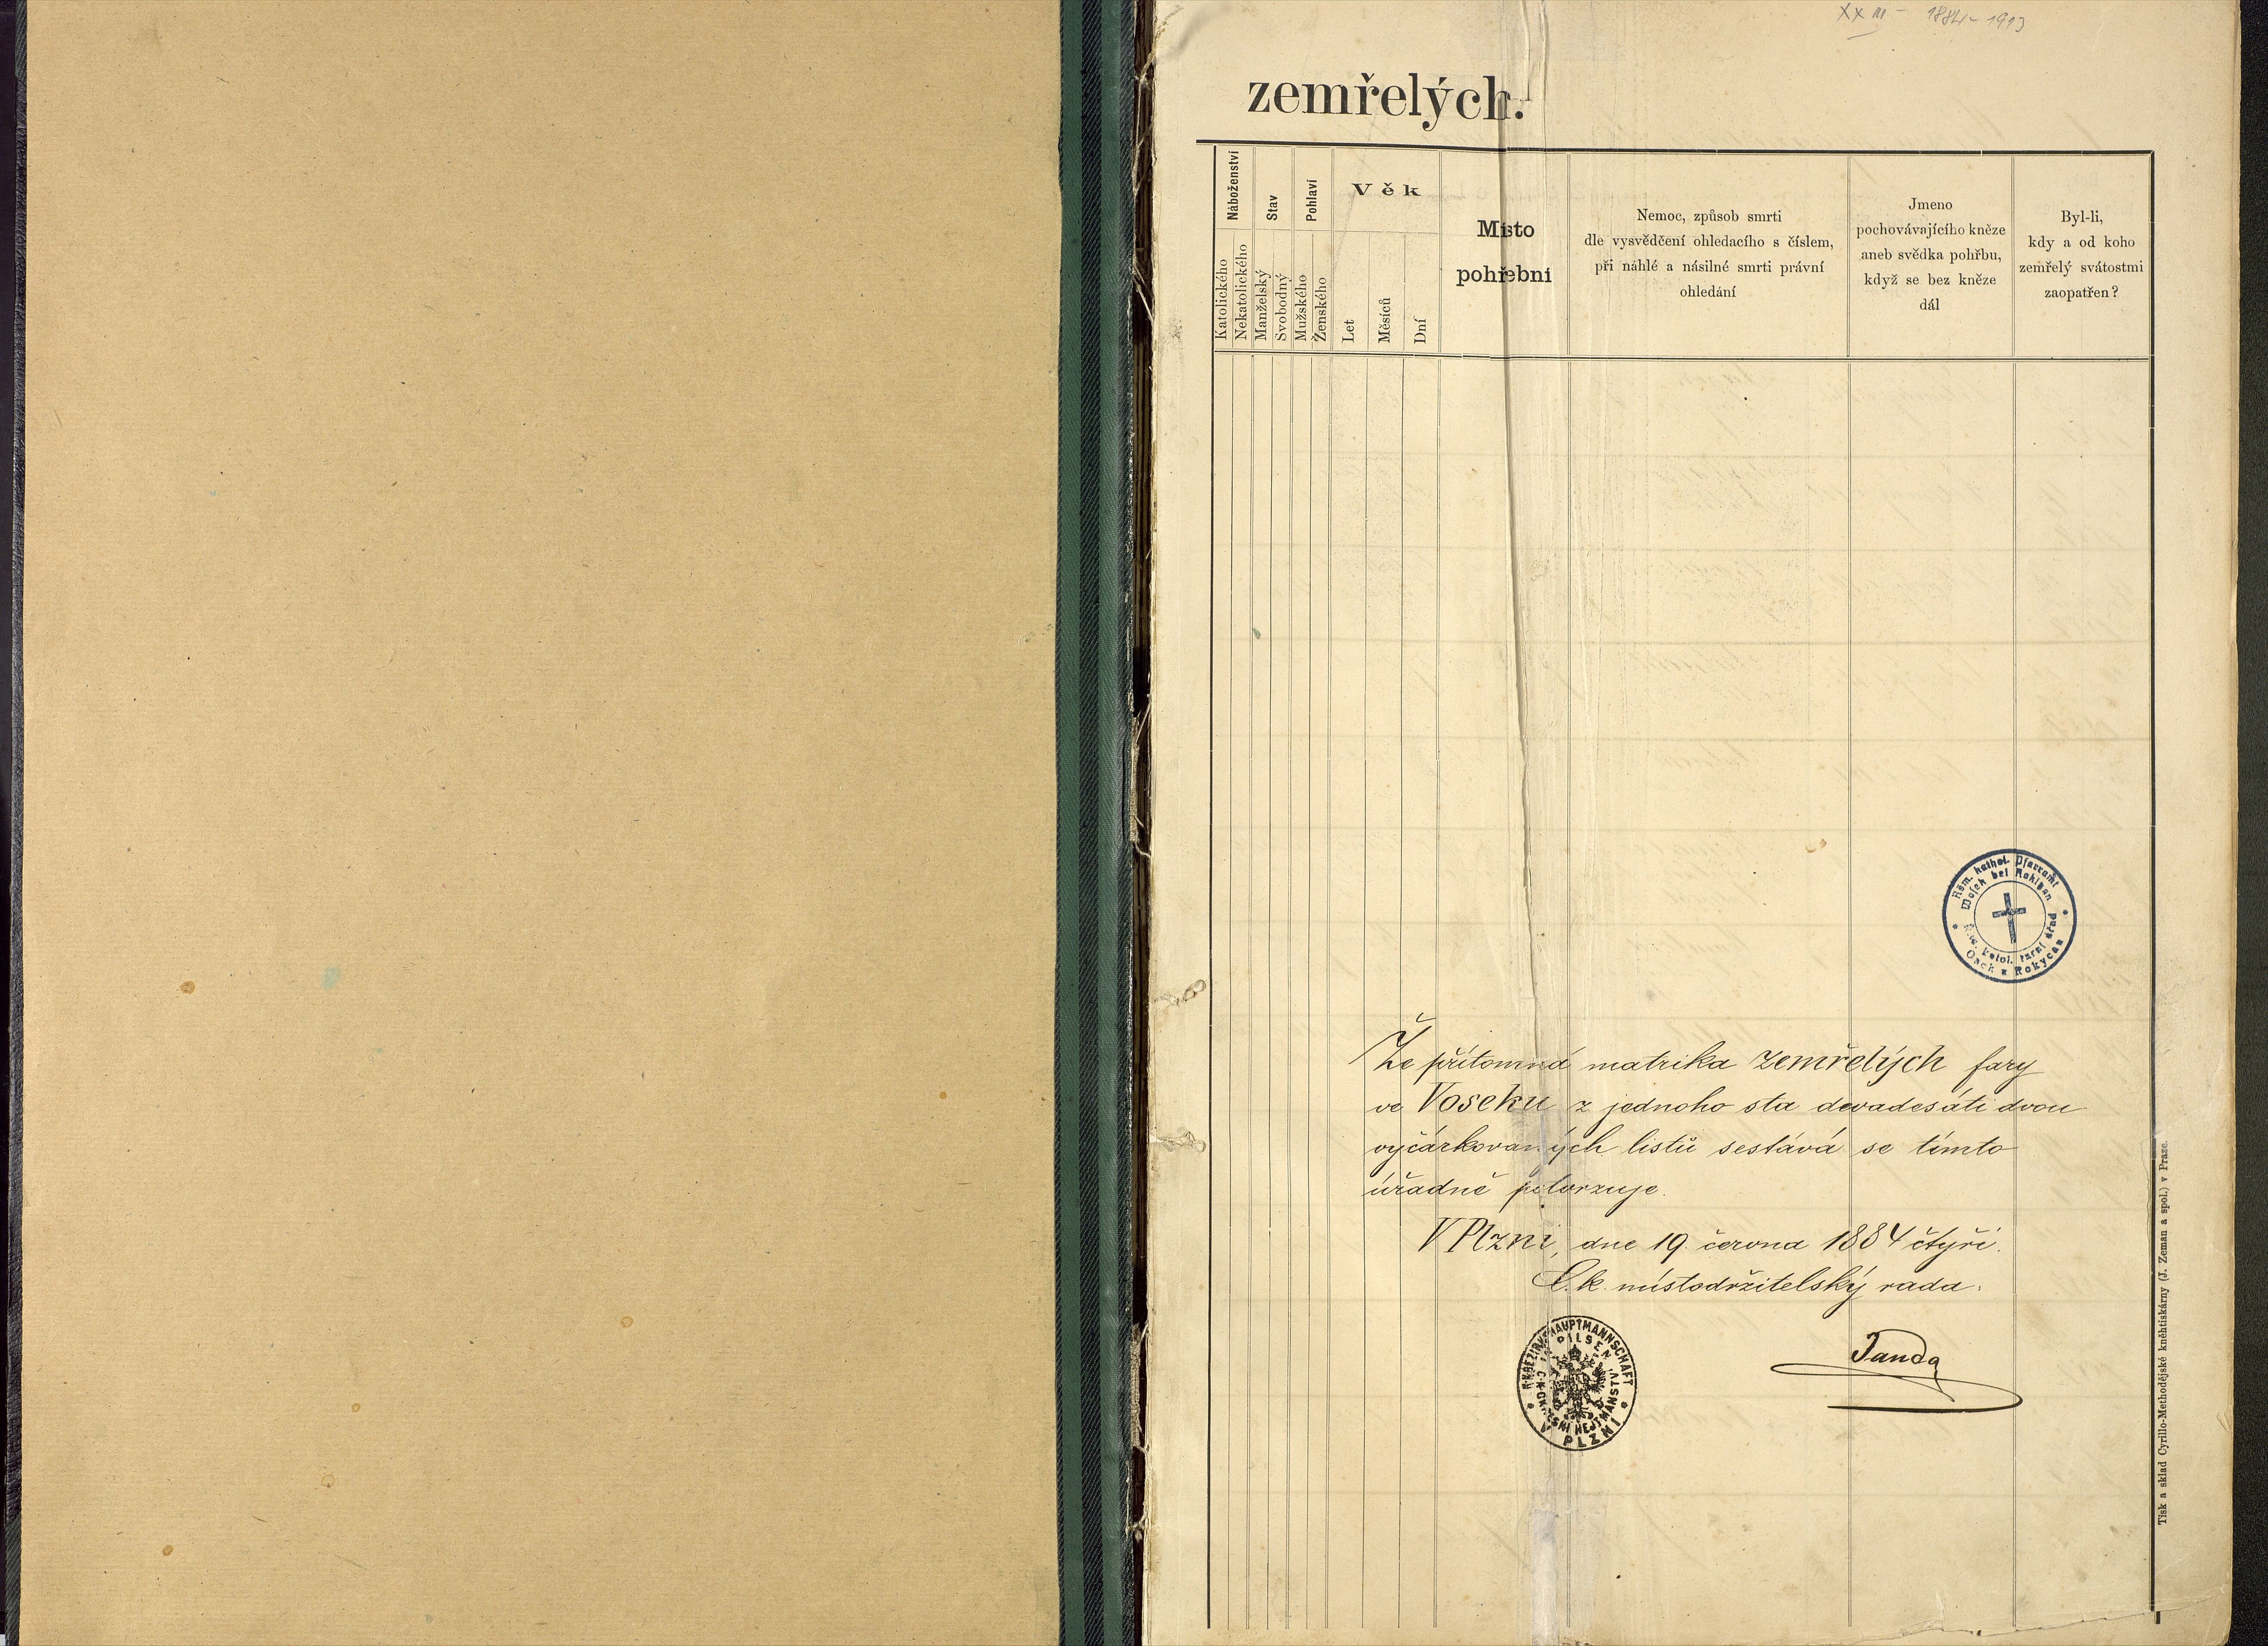 XXIII - 1884-1913
zemřelých.
Náboženství
Stav
Pohlaví
Věk
Místo
pohřební
Nemoc, způsob smrti
dle vysvědčení ohledacího s číslem,
při náhlé a násilné smrti právní
ohledání
Jmeno
pochovávajícího kněze
aneb svědka pohřbu,
když se bez kněze
dál
Byl-li,
kdy a od koho
zemřelý svátostmi
zaopatřen?
Katolického
Nekatolického
Manželský
Svobodný
Mužského
Ženského
Let
Měsíců
Dní
Röm. kathol. Pfarramt
Wosek bei Rokitzan
Řím. katol. farní úřad
Osek u Rokycan
Že přítomná matrika zemřelých fary
ve Voseku z jednoho sta devadesáti dvou
vyčárkovaných listů sestává se tímto
úřadně potvrzuje.
V Plzni, dne 19. června 1884 čtyři.
C. k. místodržitelský rada:
Janda
K.K. BEZIRKSHAUPTMANNSCHAFT
PILSEN
C. K. OKRESNÍ HEJTMANSTVÍ
V PLZNI
Tisk a sklad Cyrillo-Methodějské kněhtiskárny (J. Zeman a spol.) v Praze.